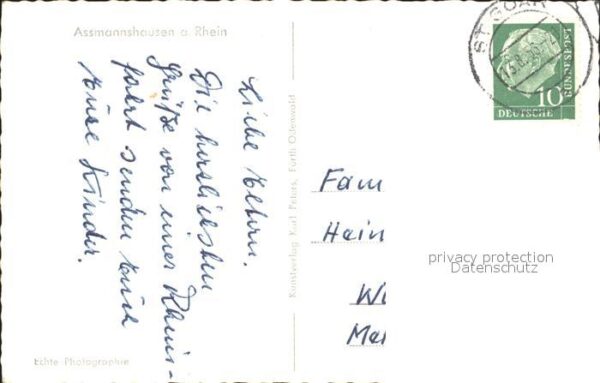 Assmannshausen a. Rhein
Liebe Eltern.
Die herzliesten
Grüße von einer Rhein-
fahrt senden Euch
Eure Kinder.
Echte Photographie
Kunstverlag Karl Peters, Fürth Odenwald
ST. GOAR
10
DEUTSCHE
BUNDESPOST
Fam
Hein
W
Me
privacy protection
Datenschutz